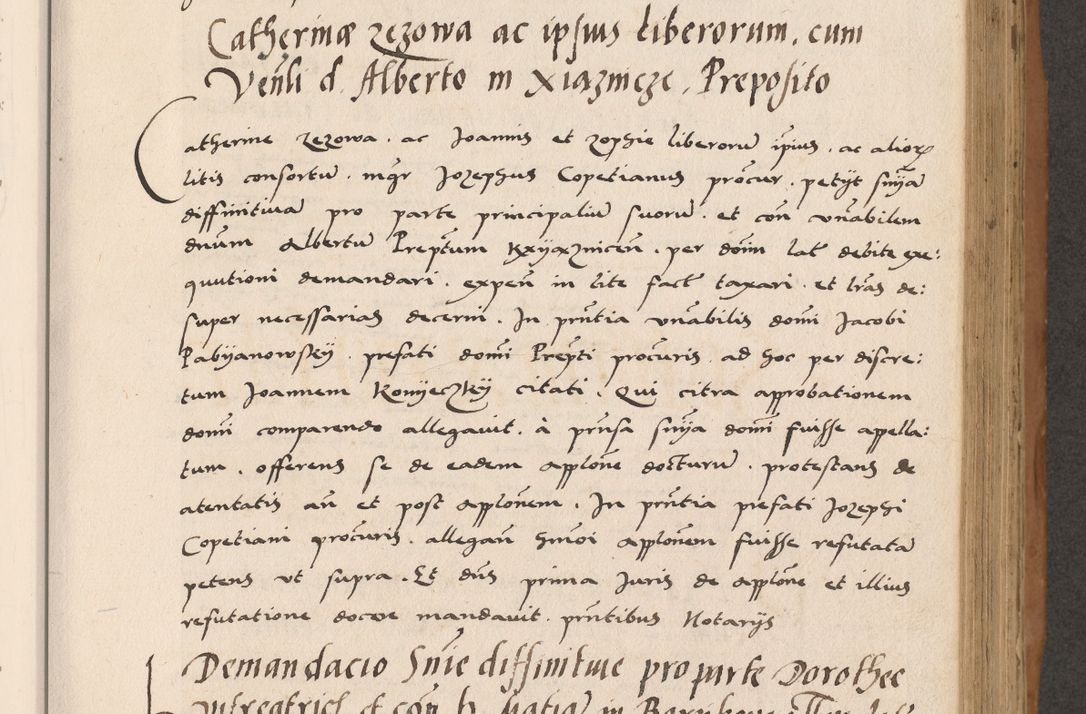 Catherinæ zezowa ac ipsius liberorum, cum
Venli d. Alberto in Xiaznicze, Preposito
Catherine Zezowa . ac Joannis et zophie liberorū ipius . ac alior
litis consortū . mgr Jozephus Copetianus procur . petijt snijā
diffinitiuā pro parte principaliū suorū . et con vnabilem
dnum Albertū Preptum Kxyaznicen . per domi lat debite exe:
quutioni demandari . expen in lite fact taxari . et lras de:
super necessarias decerni . In pntia vnabilis domi Jacobi
Pabijanowskij . prefati domi Prepti procuris . ad hoc per discre:
tum Joannem Konyeczkij citati . Qui citra approbationem
domi comparendo allegauit . à prnsa snija domi fuisse apella:
tum . offerens se de eadem applone docturū . protestans de
atentatis an et post applonem . In pntia prefati Jozephi
Copetiani procuris . allegan hmoi applonem fuisse refutatā
petens vt supra . Et dns prima Juris de applone et illius
refutatione docere mandauit . pntibus Notarijs
Demandacio Snie diffinitiue pro parte Dorothee